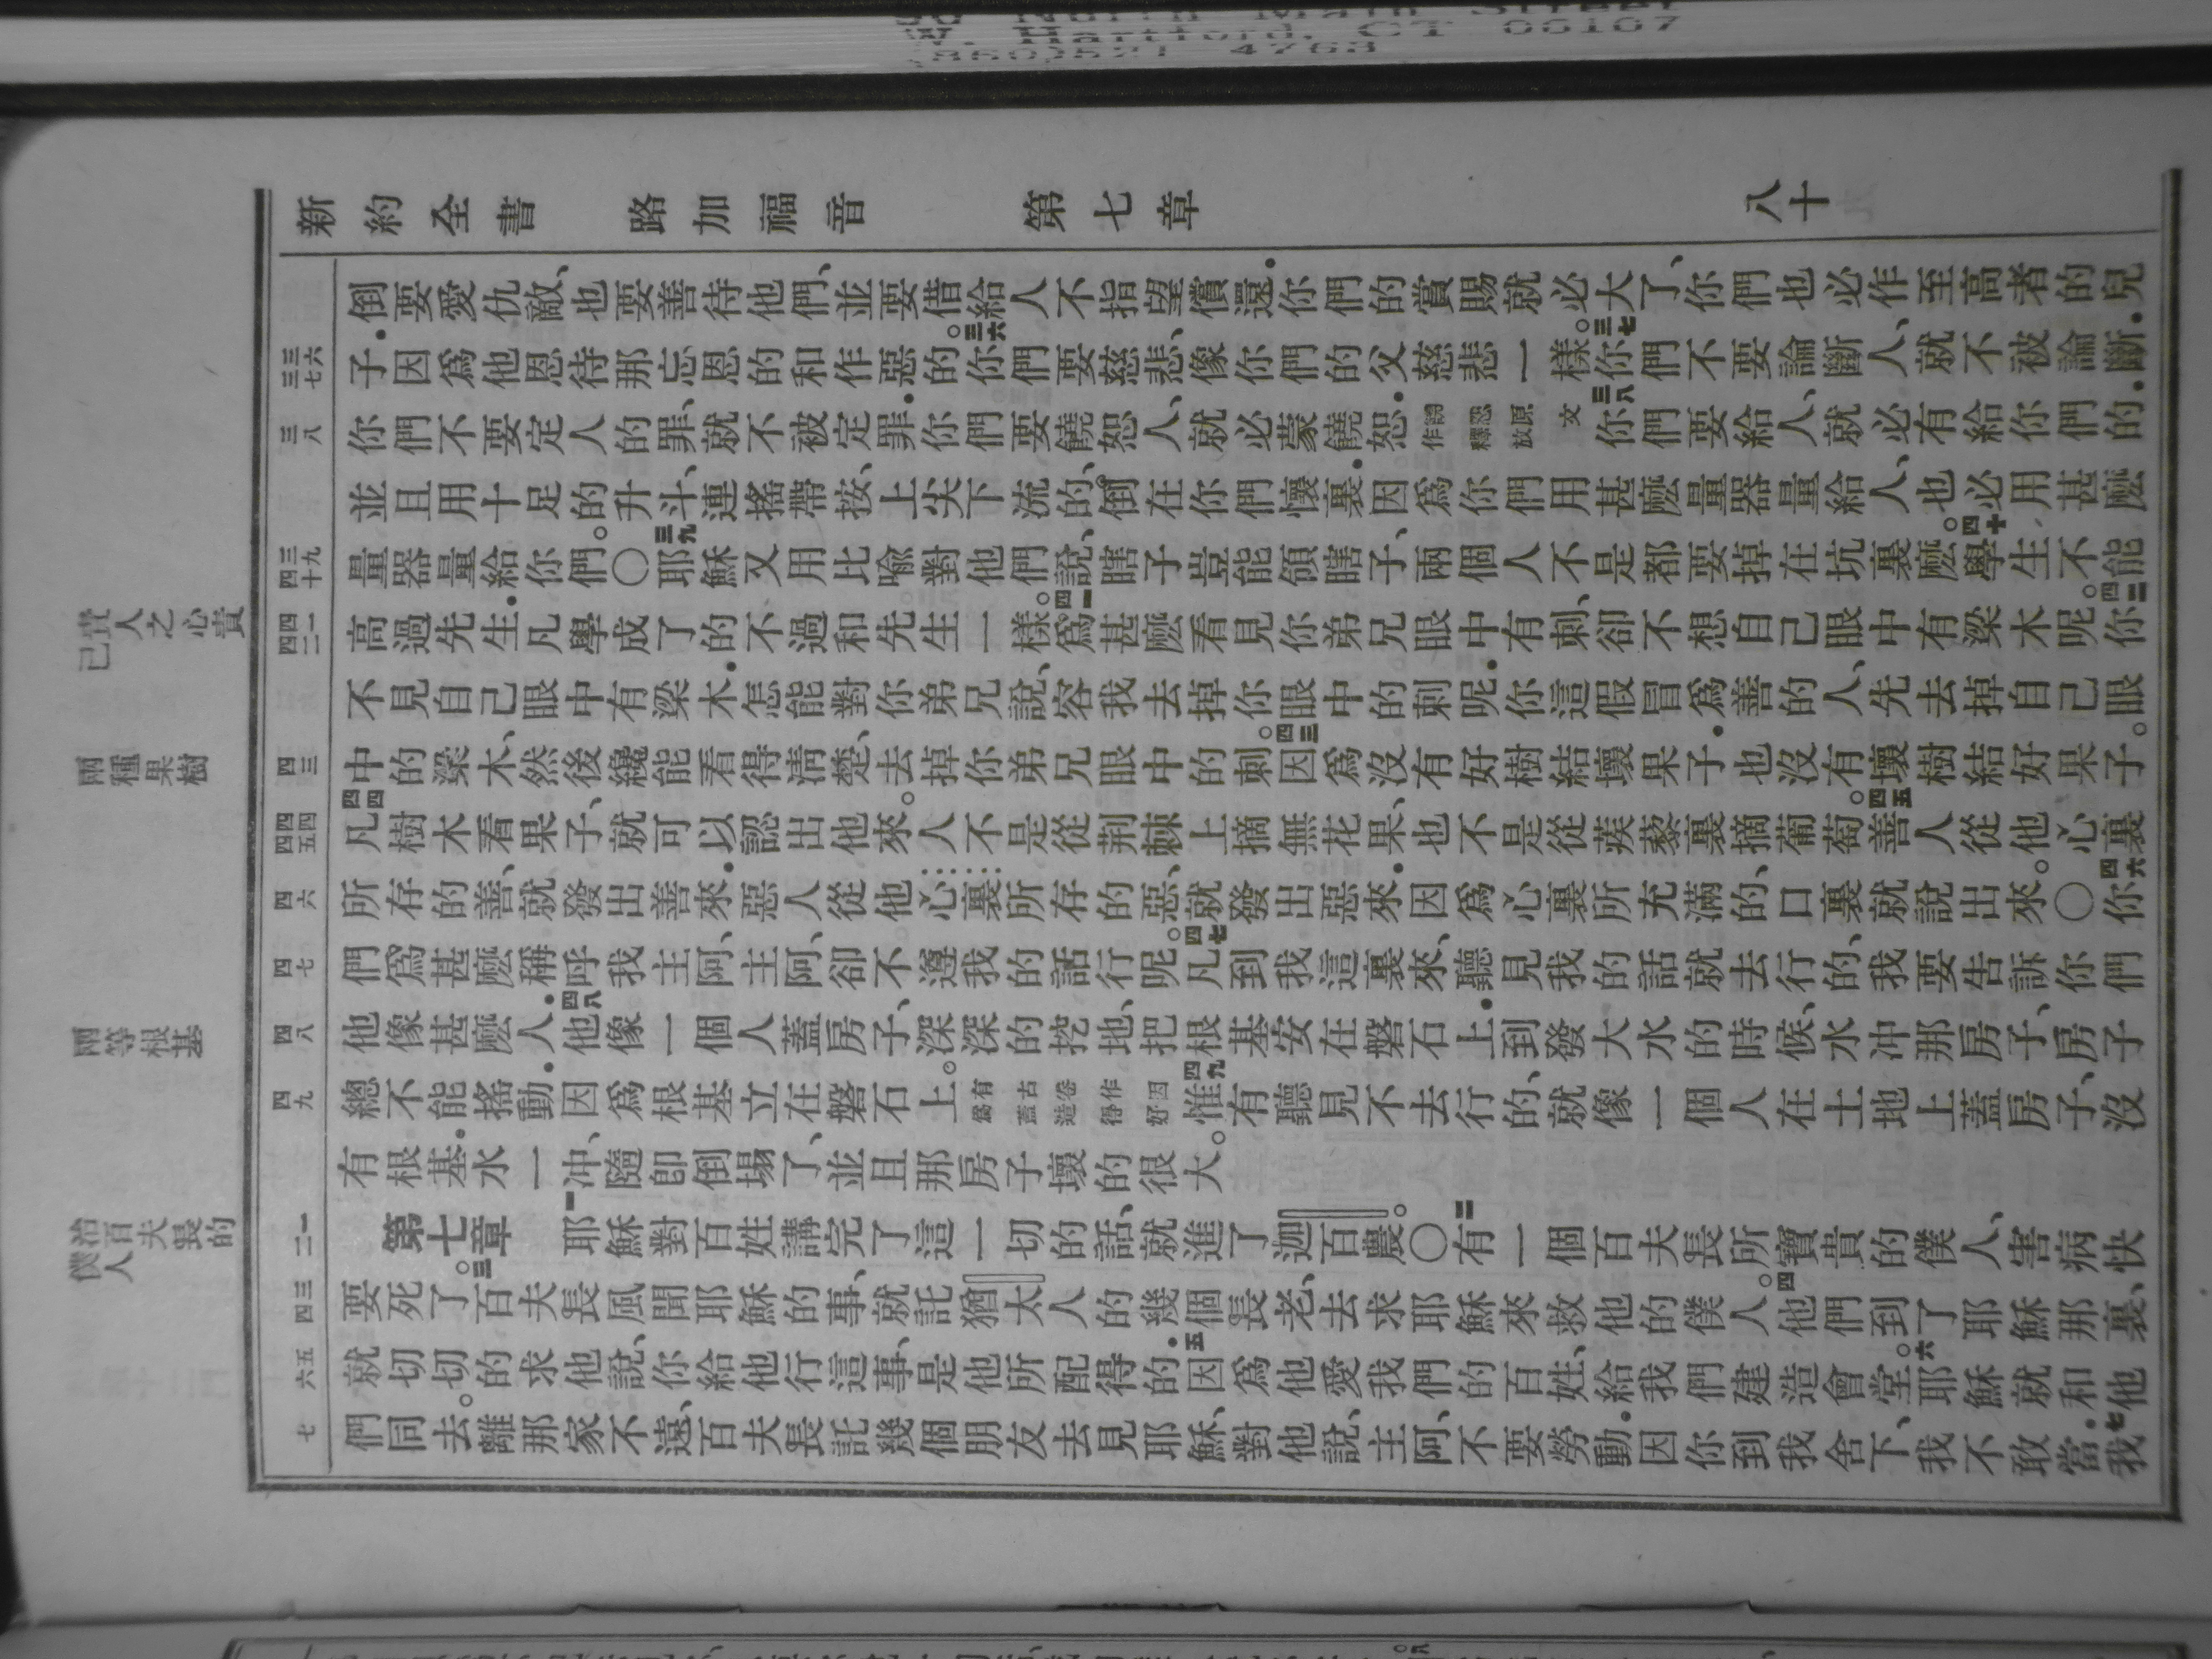 North Main Street
W. Hartford, CT 06107
(860)521 4763
新約全書 路加福音 第七章 八十
倒要愛仇敵、也要善待他們、並要借給人不指望償還.你們的賞賜就必大了、你們也必作至高者的兒
三六 三七
子.因爲他恩待那忘恩的和作惡的。三六你們要慈悲、像你們的父慈悲一樣。三七你們不要論斷人、就不被論斷.
三八
你們不要定人的罪、就不被定罪.你們要饒恕人、就必蒙饒恕.饒恕原文作釋放三八你們要給人、就必有給你們的.
並且用十足的升斗、連搖帶按、上尖下流的、倒在你們懷裏.因爲你們用甚麽量器量給人、也必用甚麽
三九 四十
量器量給你們。〇三九耶穌又用比喻對他們說、瞎子豈能領瞎子、兩個人不是都要掉在坑裏麽。四十學生不能
四一 四二
高過先生.凡學成了的不過和先生一樣。四一爲甚麽看見你弟兄眼中有刺、卻不想自己眼中有梁木呢。四二你
責人之心責己
不見自己眼中有梁木.怎能對你弟兄說、容我去掉你眼中的刺呢.你這假冒爲善的人、先去掉自己眼
四三
中的梁木、然後纔能看得清楚、去掉你弟兄眼中的刺。四三因爲沒有好樹結壞果子.也沒有壞樹結好果子。
兩種果樹
四四 四五
四四凡樹木看果子、就可以認出他來。人不是從荆棘上摘無花果、也不是從蒺藜裏摘葡萄。四五善人從他心裏
四六
所存的善、就發出善來.惡人從他心裏所存的惡、就發出惡來.因爲心裏所充滿的、口裏就說出來。〇四六你
四七
們爲甚麽稱呼我主阿、主阿、卻不遵我的話行呢。四七凡到我這裏來、聽見我的話就去行的、我要告訴你們
四八
他像甚麽人.四八他像一個人蓋房子、深深的挖地、把根基安在磐石上.到發大水的時候、水冲那房子、房子
兩等根基
四九
總不能搖動.因爲根基立在磐石上。有古卷作因爲蓋造得好四九惟有聽見不去行的、就像一個人在土地上蓋房子、沒
有根基.水一冲、隨卽倒塌了、並且那房子壞的很大。
一 二
第七章 一耶穌對百姓講完了這一切的話、就進了迦百農。〇二有一個百夫長所寶貴的僕人、害病快
治百夫長的僕人
三 四
要死了。三百夫長風聞耶穌的事、就託猶太人的幾個長老、去求耶穌來救他的僕人。四他們到了耶穌那裏、
五 六
就切切的求他說、你給他行這事、是他所配得的.五因爲他愛我們的百姓、給我們建造會堂。六耶穌就和他
七
們同去。離那家不遠、百夫長託幾個朋友去見耶穌、對他說、主阿、不要勞動.因你到我舍下、我不敢當.七我